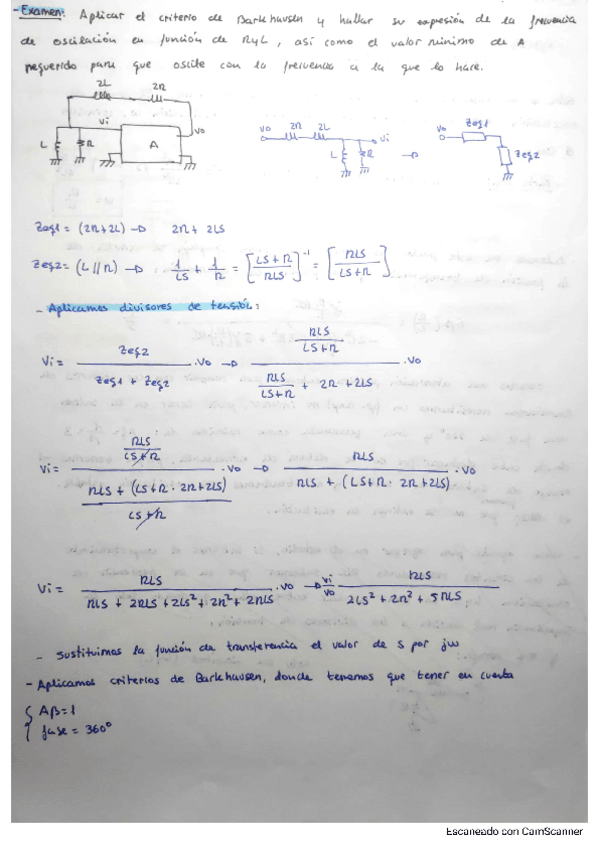 - Examen: Aplicar el criterio de Barkhausen y hallar su expresión de la frecuencia
de oscilación en función de R y L, así como el valor minimo de A
requerido para que oscile con la frecuencia a la que lo hace.
2L 2R
Vi Vo
L R A
Vo 2R 2L Vi
L R
Vo Zeq1
Zeq2
Zeq1 = (2R+2L) → 2R + 2LS
Zeq2 = (L // R) → 1/LS + 1/R = [LS + R / RLS]^-1 = [RLS / LS + R]
- Aplicamos divisores de tensión:
Vi = Zeq2 / Zeq1 + Zeq2 . Vo → RLS/LS+R / RLS/LS+R + 2R + 2LS . Vo
Vi = RLS/LS+R / RLS + (LS+R · 2R+2LS)/LS+R . Vo → RLS / RLS + (LS+R · 2R+2LS) . Vo
Vi = RLS / RLS + 2RLS + 2LS² + 2R² + 2RLS . Vo → Vi/Vo RLS / 2LS² + 2R² + 5RLS
- Sustituimos la función de transferencia el valor de s por jw
- Aplicamos criterios de Barkhausen, donde tenemos que tener en cuenta
{ Aβ = 1
fase = 360°
Escaneado con CamScanner